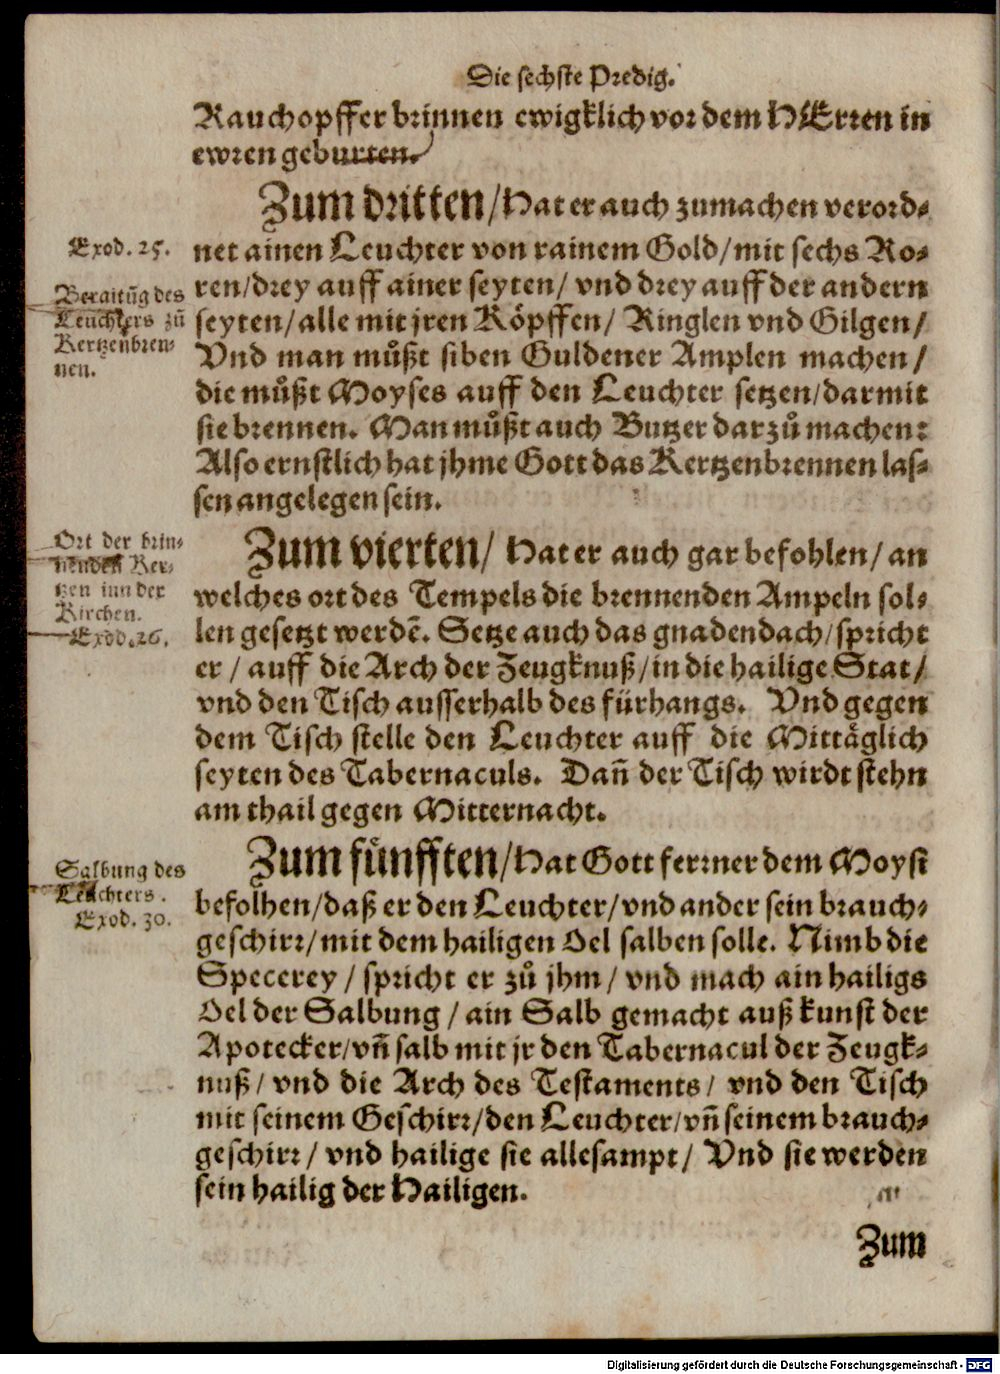 Die sechste Predig.
Rauchopffer brinnen ewigklich vor dem HErren in
ewren geburten.
Zum dritten/ Hat er auch zumachen verord-
Exod. 25.
net ainen Leuchter von rainem Gold/ mit sechs Ro-
Beraitũg des
Leuchters zů
Kertzenbren-
nen.
ren/ drey auff ainer seyten/ vnd drey auff der andern
seyten/ alle mit jren Köpffen/ Ringlen vnd Gilgen/
Vnd man můßt siben Guldener Amplen machen/
die můßt Moyses auff den Leuchter setzen/ darmit
sie brennen. Man můßt auch Butzer darzů machen:
Also ernstlich hat jhme Gott das Kertzenbrennen las-
sen angelegen sein.
Ort der brin-
nenden Ker-
tzen inn der
Kirchen.
Exod. 26.
Zum vierten/ Hat er auch gar befohlen/ an
welches ort des Tempels die brennenden Ampeln sol-
len gesetzt werdẽ. Setze auch das gnadendach/ spricht
er/ auff die Arch der Zeugknuß/ in die hailige Stat/
vnd den Tisch ausserhalb des fürhangs. Vnd gegen
dem Tisch stelle den Leuchter auff die Mittäglich
seyten des Tabernaculs. Dañ der Tisch wirdt stehn
am thail gegen Mitternacht.
Salbung des
Leuchters.
Exod. 30.
Zum fünfften/ Hat Gott ferrner dem Moysi
befolhen/ daß er den Leuchter/ vnd ander sein brauch-
geschirr/ mit dem hailigen Oel salben solle. Nimb die
Specerey/ spricht er zů jhm/ vnd mach ain hailigs
Oel der Salbung/ ain Salb gemacht auß kunst der
Apotecker/ vñ salb mit jr den Tabernacul der Zeugk-
nuß/ vnd die Arch des Testaments/ vnd den Tisch
mit seinem Geschirr/ den Leuchter/ vñ seinem brauch-
geschirr/ vnd hailige sie allesampt/ Vnd sie werden
sein hailig der Hailigen.
Zum
Digitalisierung gefördert durch die Deutsche Forschungsgemeinschaft - DFG